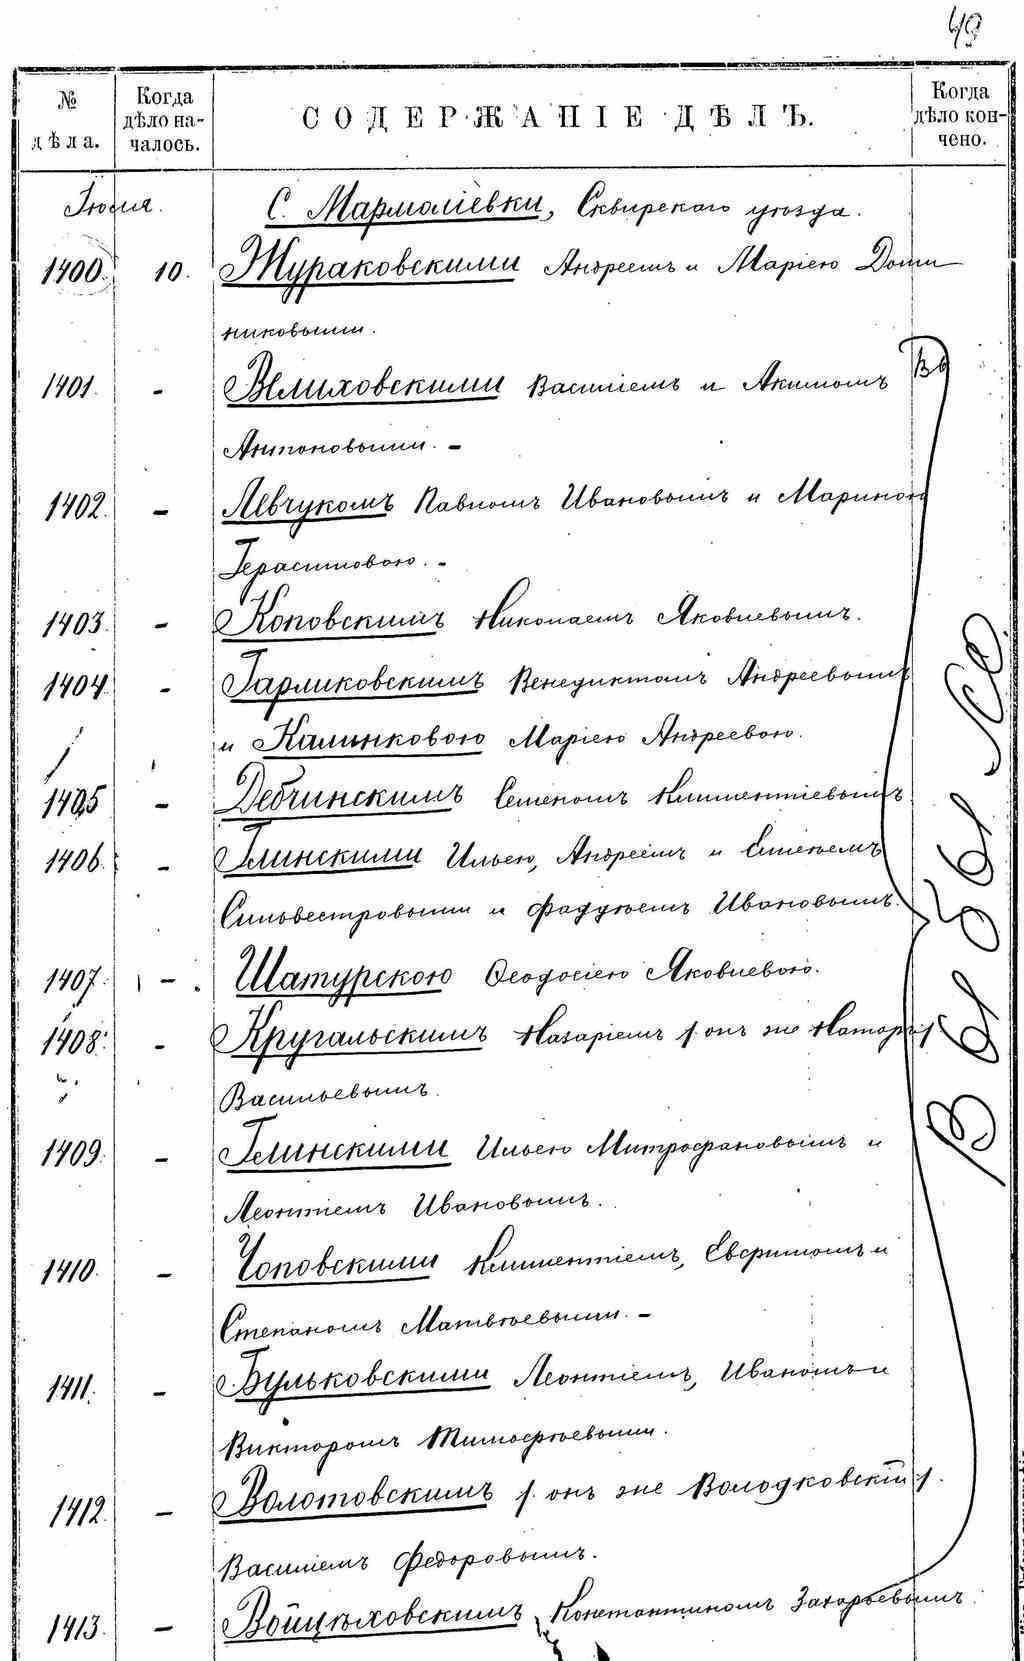 49
№ дѣла. Когда дѣло началось. СОДЕРЖАНІЕ ДѢЛЪ. Когда дѣло кончено.
Іюня. С. Мармоліевки, Сквирскаго уѣзда.
1400. 10. Жураковскими Андреемъ и Маріею Доми
никовыми.
1401. - Велиховскими Василіемъ и Акимомъ
Антоновыми. -
1402. - Левчукомъ Павломъ Ивановымъ и Мариною
Герасимовою. -
1403. - Коповскимъ Николаемъ Яковлевымъ.
1404. - Гарликовскимъ Венедиктомъ Андреевымъ
и Калинковою Маріею Андреевою.
1405 - Дебчинскимъ Семеномъ Климентіевымъ
1406. - Глинскими Ильею, Андреемъ и
Сильвестровыми и Фаддѣемъ Ивановымъ.
1407. - Шатурскою Ѳеодосіею Яковлевою.
1408. - Кругальскимъ Назаріемъ /. онъ же
Васильевымъ.
1409. - Глинскими Ильею Митрофановымъ и
Леонтіемъ Ивановымъ.
1410. - Чоповскими Климентіемъ, Евфимомъ и
Степаномъ Матвѣевыми. -
1411. - Бульковскими Леонтіемъ, Иваномъ и
Викторомъ Тимофѣевыми.
1412. - Волотовскимъ /. онъ же Володковскій /.
Василіемъ Федоровымъ.
1413. - Войцѣховскимъ Константиномъ Захарьевымъ.